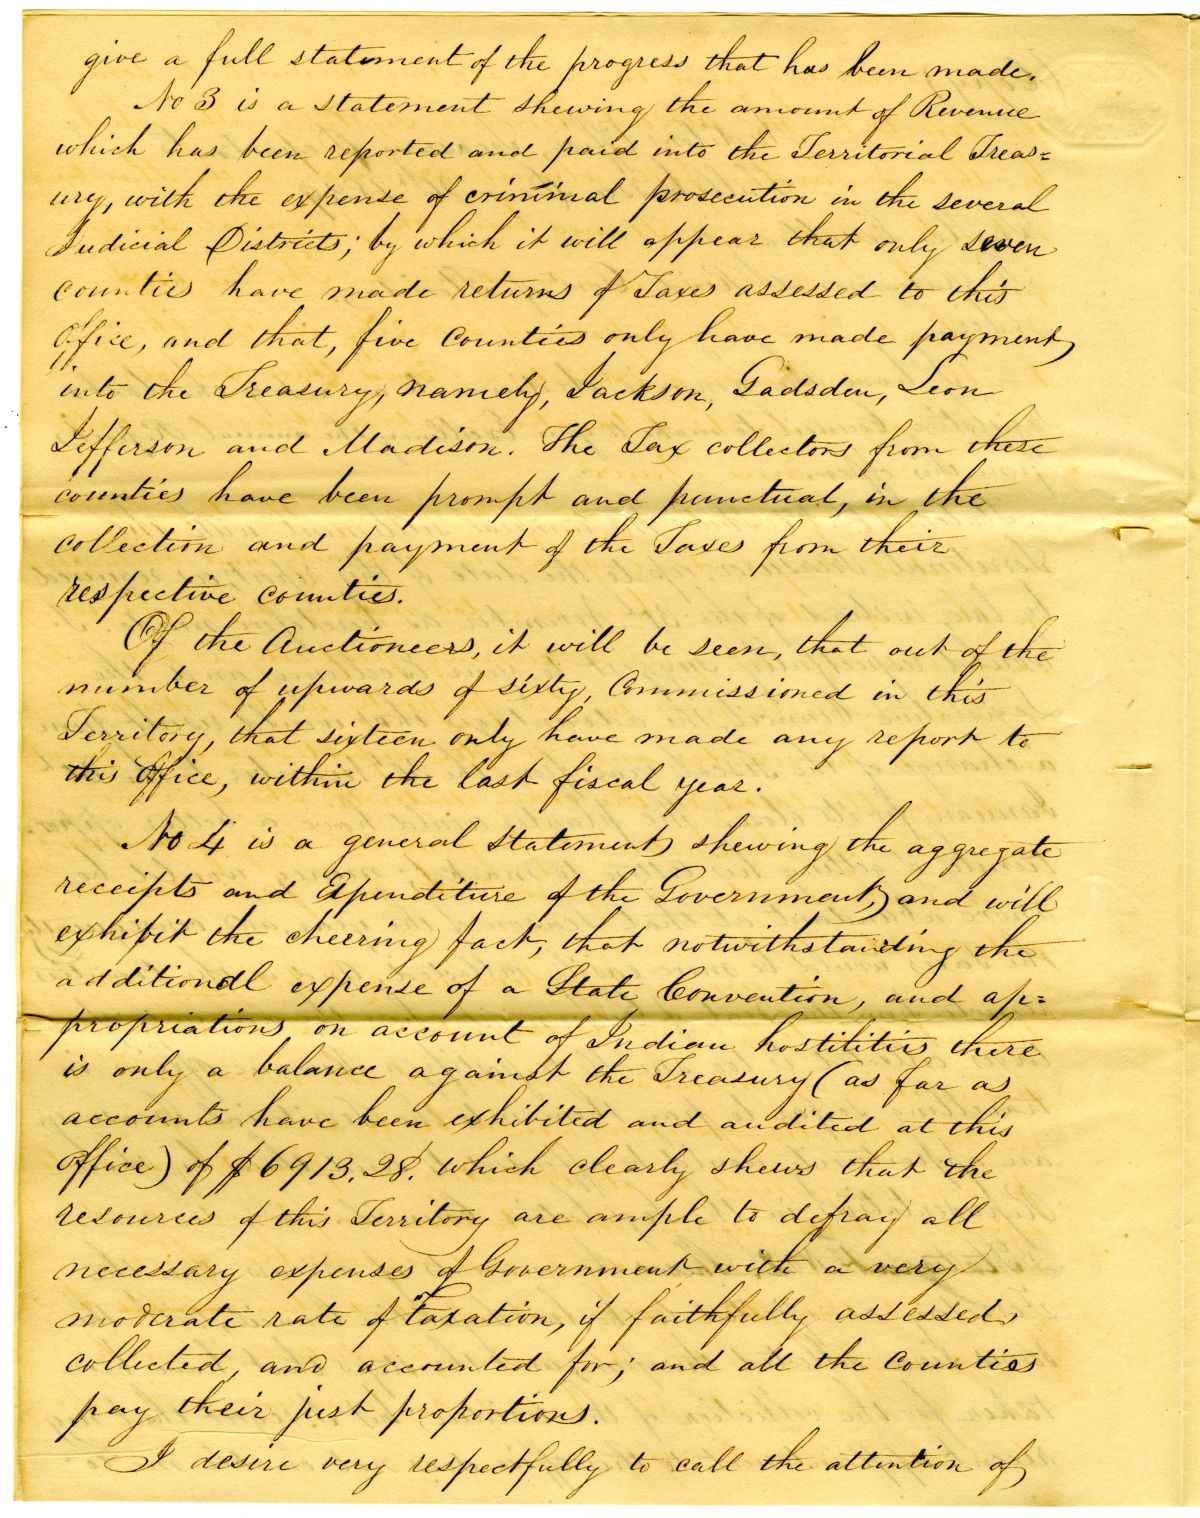 give a full statement of the progress that has been made.
No 3 is a statement shewing the amount of Revenue
which has been reported and paid into the Territorial Treas=
ury, with the expense of criminal prosecution in the several
Judicial Districts; by which it will appear that only seven
counties have made returns of Taxes assessed to this
Office, and that, five Counties only have made payment
into the Treasury, namely, Jackson, Gadsden, Leon
Jefferson and Madison. The Tax collectors from these
counties have been prompt and punctual, in the
collection and payment of the Taxes from their
respective counties.
Of the Auctioneers, it will be seen, that out of the
number of upwards of sixty, Commissioned in this
Territory, that sixteen only have made any report to
this Office, within the last fiscal year.
No 4 is a general Statement shewing the aggregate
receipts and Expenditure of the Government, and will
exhibit the cheering fact, that notwithstanding the
additional expense of a State Convention, and ap=
propriations on account of Indian hostilities there
is only a balance against the Treasury (as far as
accounts have been exhibited and audited at this
Office) of $6913.28. which clearly shews that the
resources of this Territory are ample to defray all
necessary expenses of Government with a very
moderate rate of Taxation, if faithfully assessed,
collected, and accounted for; and all the Counties
pay their just proportions.
I desire very respectfully to call the attention of